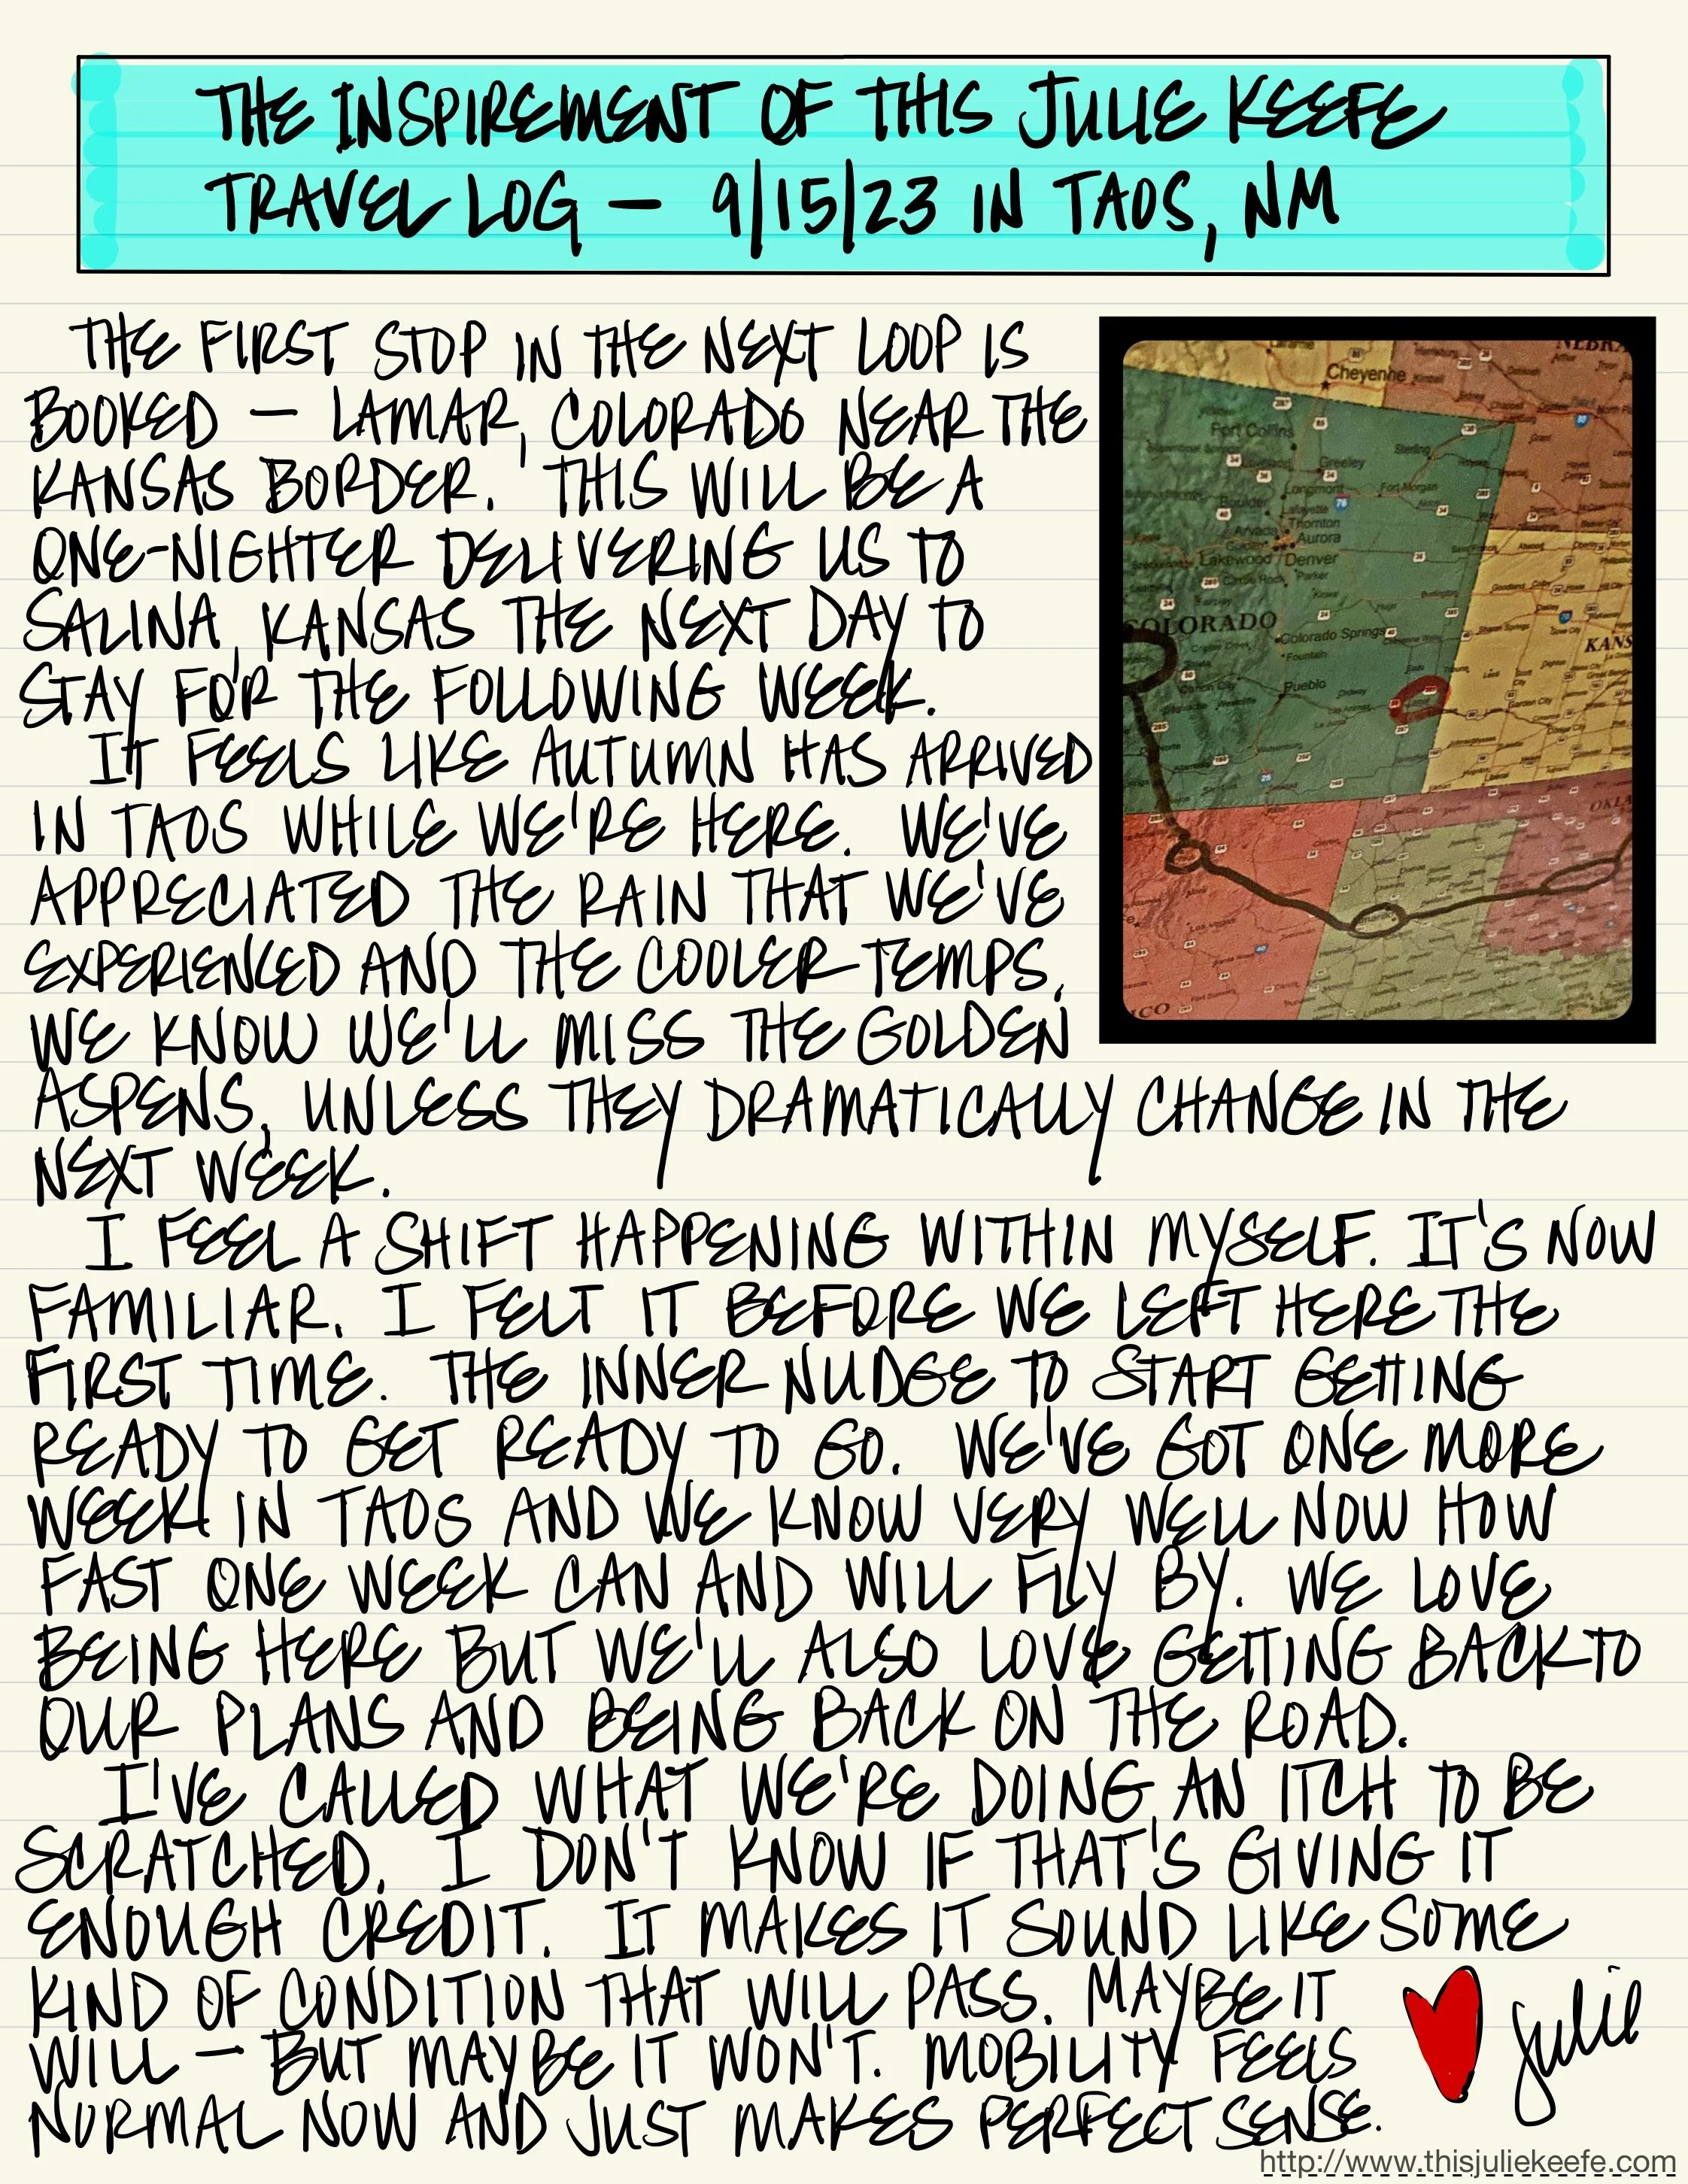 THE INSPIREMENT OF THIS JULIE KEEFE
TRAVEL LOG — 9/15/23 IN TAOS, NM
THE FIRST STOP IN THE NEXT LOOP IS
BOOKED — LAMAR, COLORADO NEAR THE
KANSAS BORDER. THIS WILL BE A
ONE-NIGHTER DELIVERING US TO
SALINA, KANSAS THE NEXT DAY TO
STAY FOR THE FOLLOWING WEEK.
IT FEELS LIKE AUTUMN HAS ARRIVED
IN TAOS WHILE WE'RE HERE. WE'VE
APPRECIATED THE RAIN THAT WE'VE
EXPERIENCED AND THE COOLER TEMPS.
WE KNOW WE'LL MISS THE GOLDEN
ASPENS, UNLESS THEY DRAMATICALLY CHANGE IN THE
NEXT WEEK.
I FEEL A SHIFT HAPPENING WITHIN MYSELF. IT'S NOW
FAMILIAR. I FELT IT BEFORE WE LEFT HERE THE
FIRST TIME. THE INNER NUDGE TO START GETTING
READY TO GET READY TO GO. WE'VE GOT ONE MORE
WEEK IN TAOS AND WE KNOW VERY WELL NOW HOW
FAST ONE WEEK CAN AND WILL FLY BY. WE LOVE
BEING HERE BUT WE'LL ALSO LOVE GETTING BACK TO
OUR PLANS AND BEING BACK ON THE ROAD.
I'VE CALLED WHAT WE'RE DOING, AN ITCH TO BE
SCRATCHED. I DON'T KNOW IF THAT'S GIVING IT
ENOUGH CREDIT. IT MAKES IT SOUND LIKE SOME
KIND OF CONDITION THAT WILL PASS. MAYBE IT
WILL — BUT MAYBE IT WON'T. MOBILITY FEELS
NORMAL NOW AND JUST MAKES PERFECT SENSE.
Julie
http://www.thisjuliekeefe.com
NEBRA
Cheyenne
Fort Collins
Sterling
Greeley
Longmont
Fort Morgan
Boulder
Lafayette
Thornton
Arvada
Aurora
Lakewood
Denver
Parker
COLORADO
Colorado Springs
Fountain
KANS
Canon City
Pueblo
Garden City
OKLA
Las Vegas
ICO